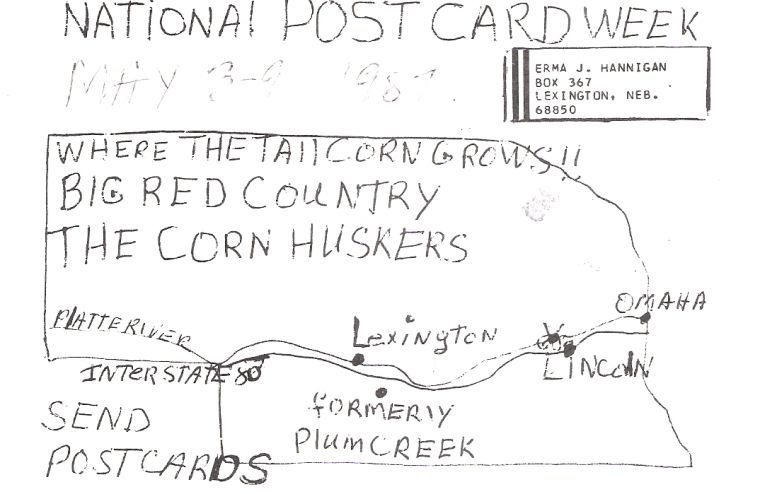 NATIONAL POST CARD WEEK
MAY 3-9 1987.
ERMA J. HANNIGAN
BOX 367
LEXINGTON, NEB.
68850
WHERE THE TALL CORN GROWS!!
BIG RED COUNTRY
THE CORN HUSKERS
OMAHA
PLATTE RIVER
LEXINGTON
LINCOLN
INTERSTATE 80
FORMERLY
PLUM CREEK
SEND
POSTCARDS